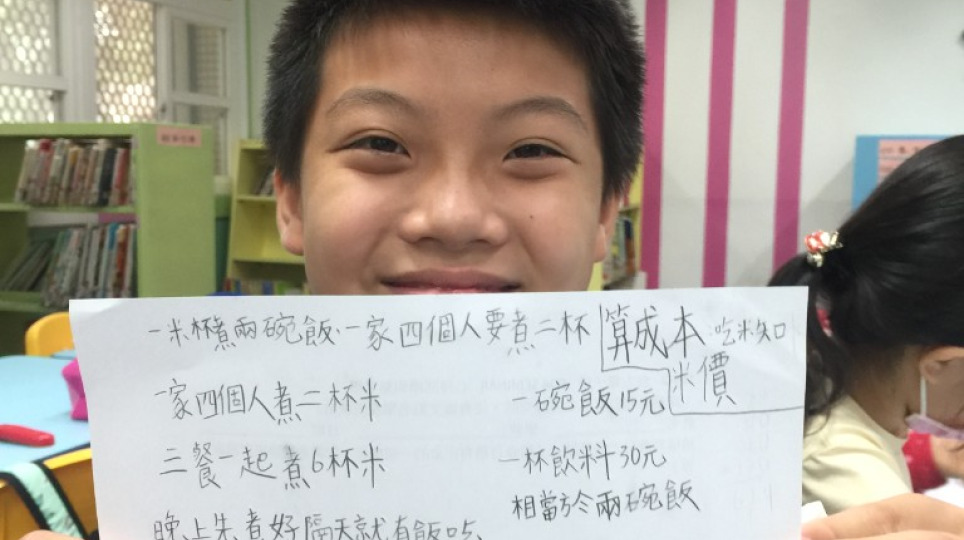 一米杯煮兩碗飯.一家四個人要煮二杯
算成本 吃米知
米價
一家四個人煮二杯米
三餐一起煮6杯米
晚上先煮好隔天就有飯吃
一碗飯15元
一杯飲料30元
相當於兩碗飯